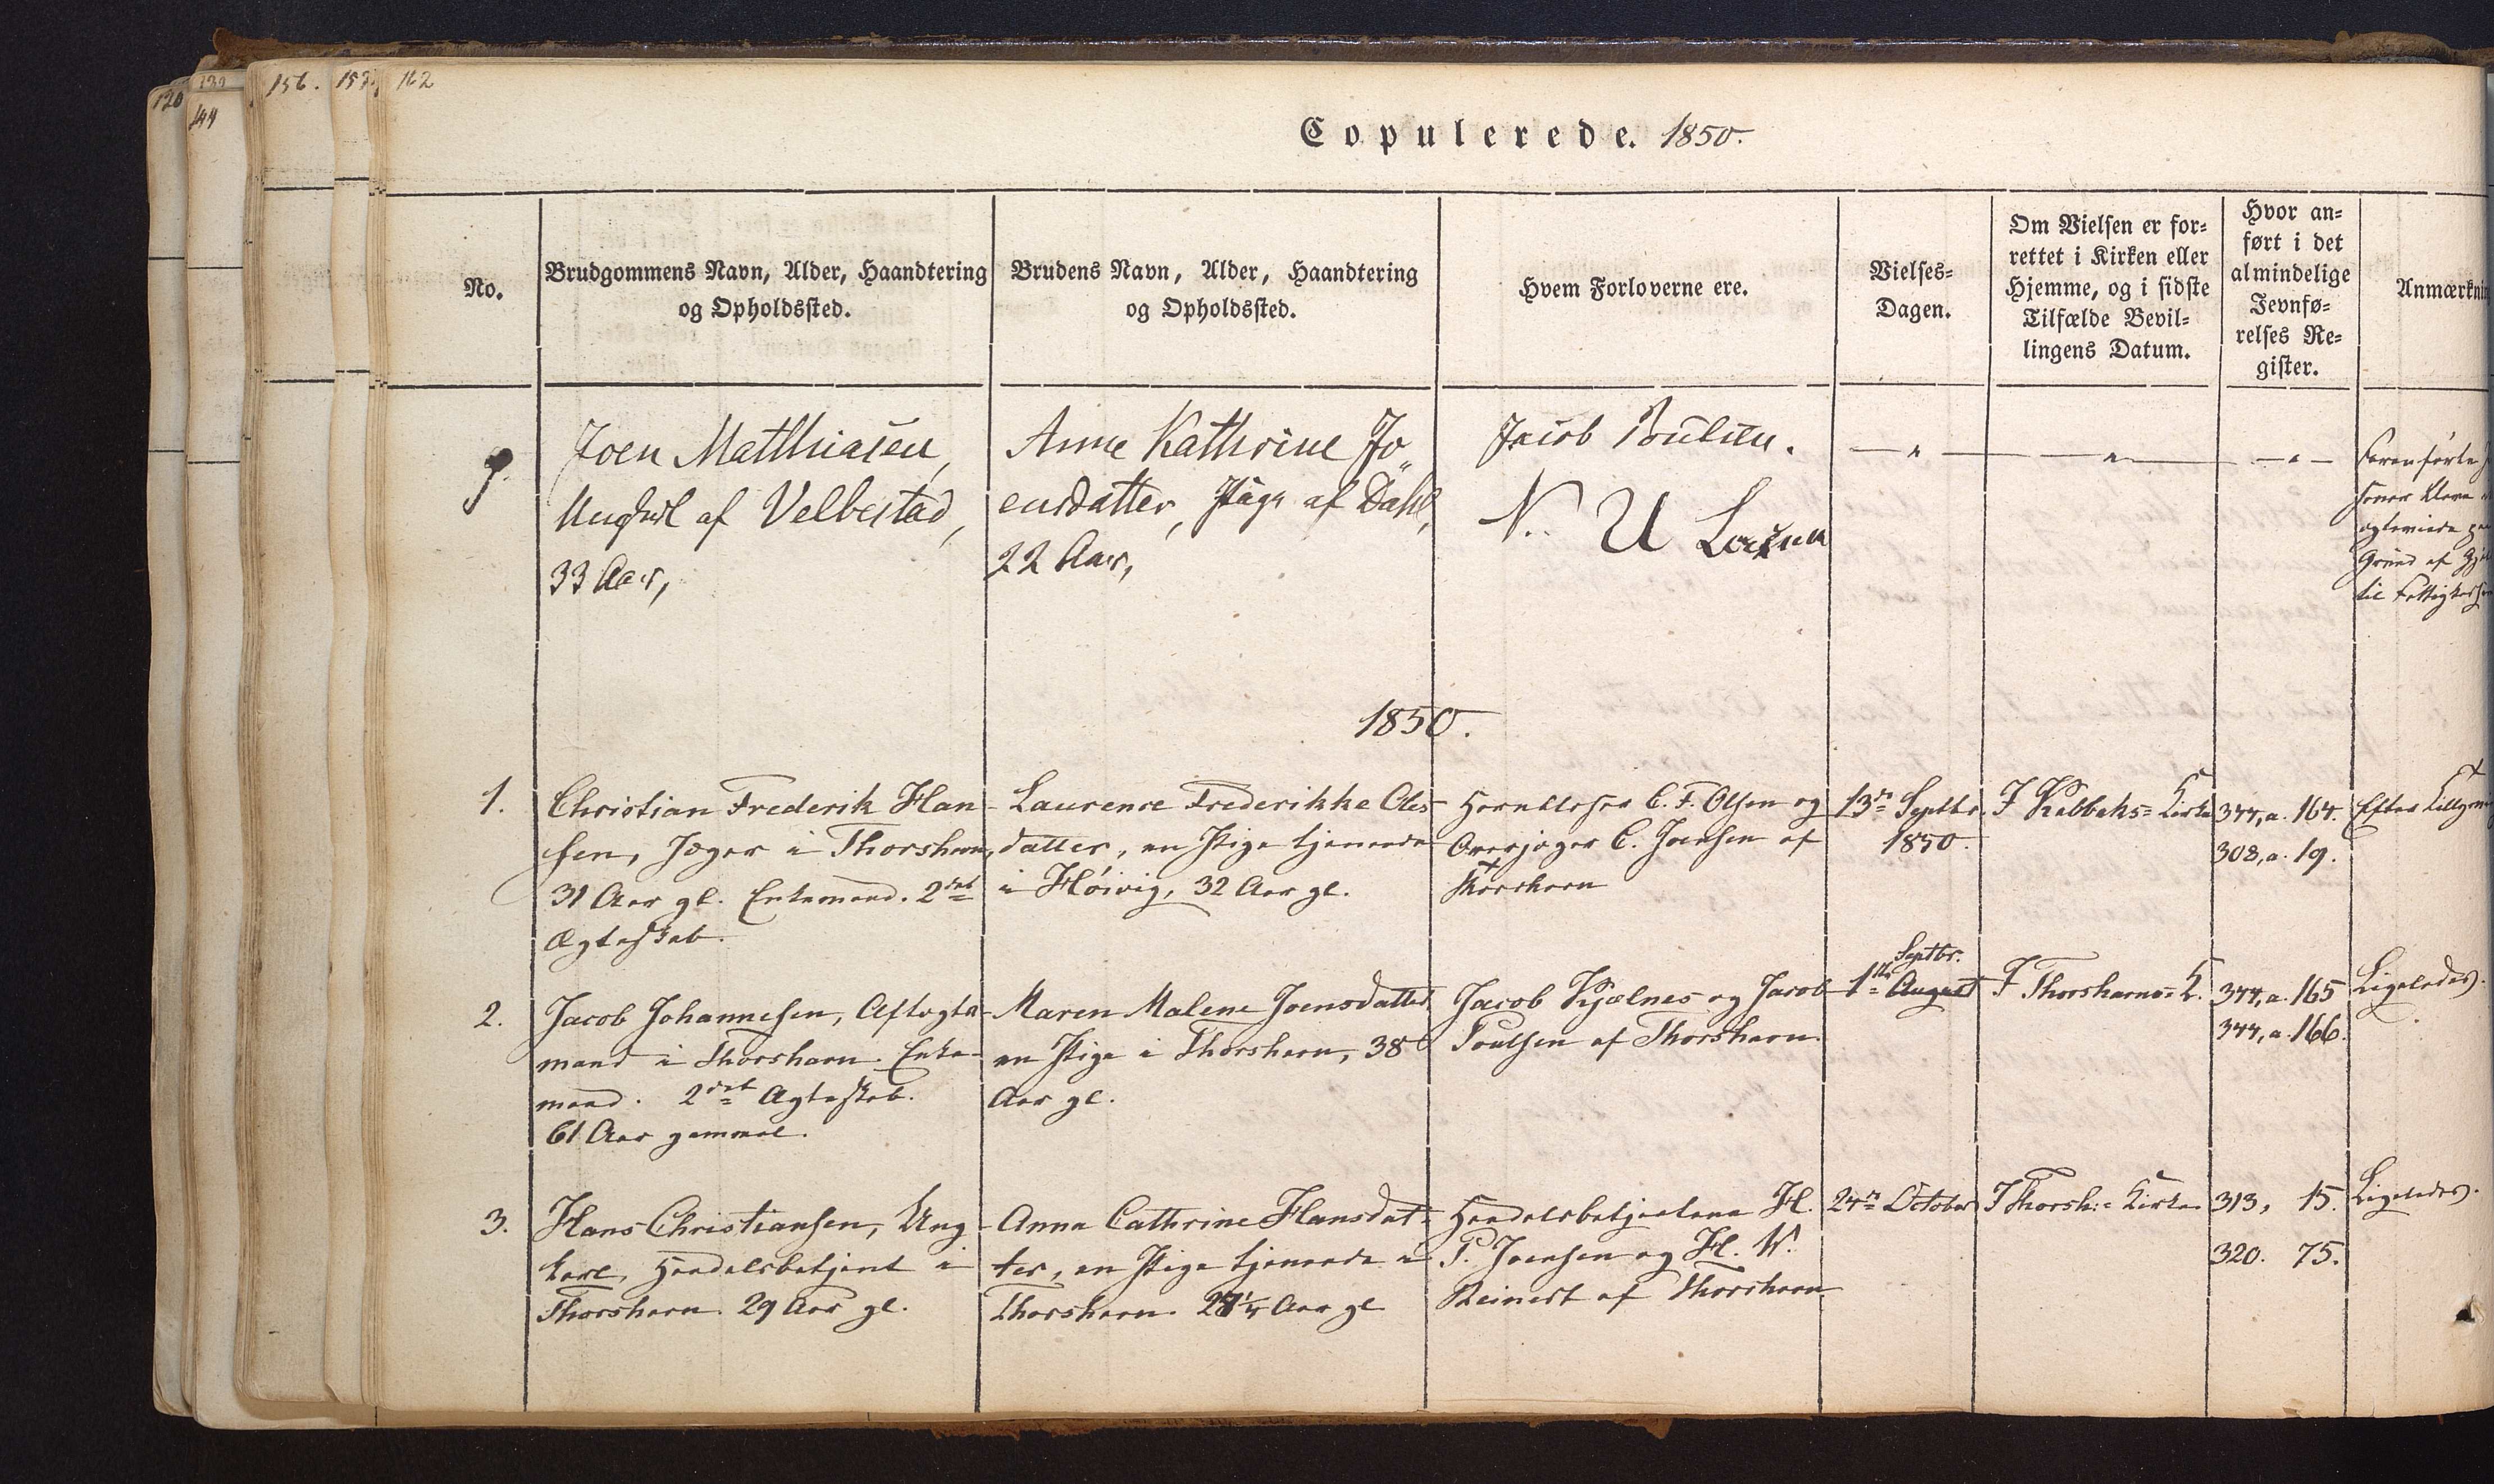 120
139
144
156.
157
162
Copulerede. 1850.
No.
Brudgommens Navn, Alder, Haandtering
og Opholdssted.
Brudens Navn, Alder, Haandtering
og Opholdssted.
Hvem Forloverne ere.
Vielses-
Dagen.
Om Vielsen er for-
rettet i Kirken eller
Hjemme, og i sidste
Tilfælde Bevil-
lingens Datum.
Hvor an-
ført i det
almindelige
Jevnfø-
relses Re-
gister.
Anmærknin
9.
Joen Matthiasen,
Ungkarl af Velbestad,
33 Aar,
Anne Kathrine Jo„
ensdatter, Pige af Dahl,
22 Aar,
Jacob Poulsen.
N. U
— " —
— " —
— " —
Grund af
1850.
1.
Christian Frederik Han-
sen, Jæger i Thorshavn,
31 Aar gl. Enkemand. 2det
Ægteskab.
Laurence Frederikke Oles-
datter, en Pige tjenende
i Hoivig, 32 Aar gl.
C. F. Olsen og
Overjæger C. Joensen af
Thorshavn
13de Septbr.
1850.
I Kirke
344, a. 164.
308, a. 19.
Efter
2.
Jacob Johannesen, Aftægts-
mand i Thorshavn. Enke-
mand. 2det Ægteskab.
61 Aar gammel.
Maren Malene Joensdatter
en Pige i Thorshavn, 38
Aar gl.
Jacob Kjælnes og Jacob
Poulsen af Thorshavn.
Septbr.
1ste August
I Thorshavns K.
344, a. 165
344, a. 166.
Ligeledes.
3.
Hans Christiansen, Ung
karl, Handelsbetjent i
Thorshavn. 29 Aar gl.
Anna Cathrine Hansdat-
ter, en Pige tjenende i
Thorshavn. Aar gl
Handelsbetjentene H.
P. Joensen og H. W.
Reinert af Thorshavn
24de October
I Thorsh: Kirke
313, 15.
320. 75.
Ligeledes.